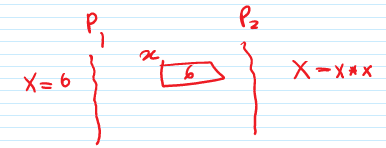 P1 P2
x
X = 6 6 X = x * x